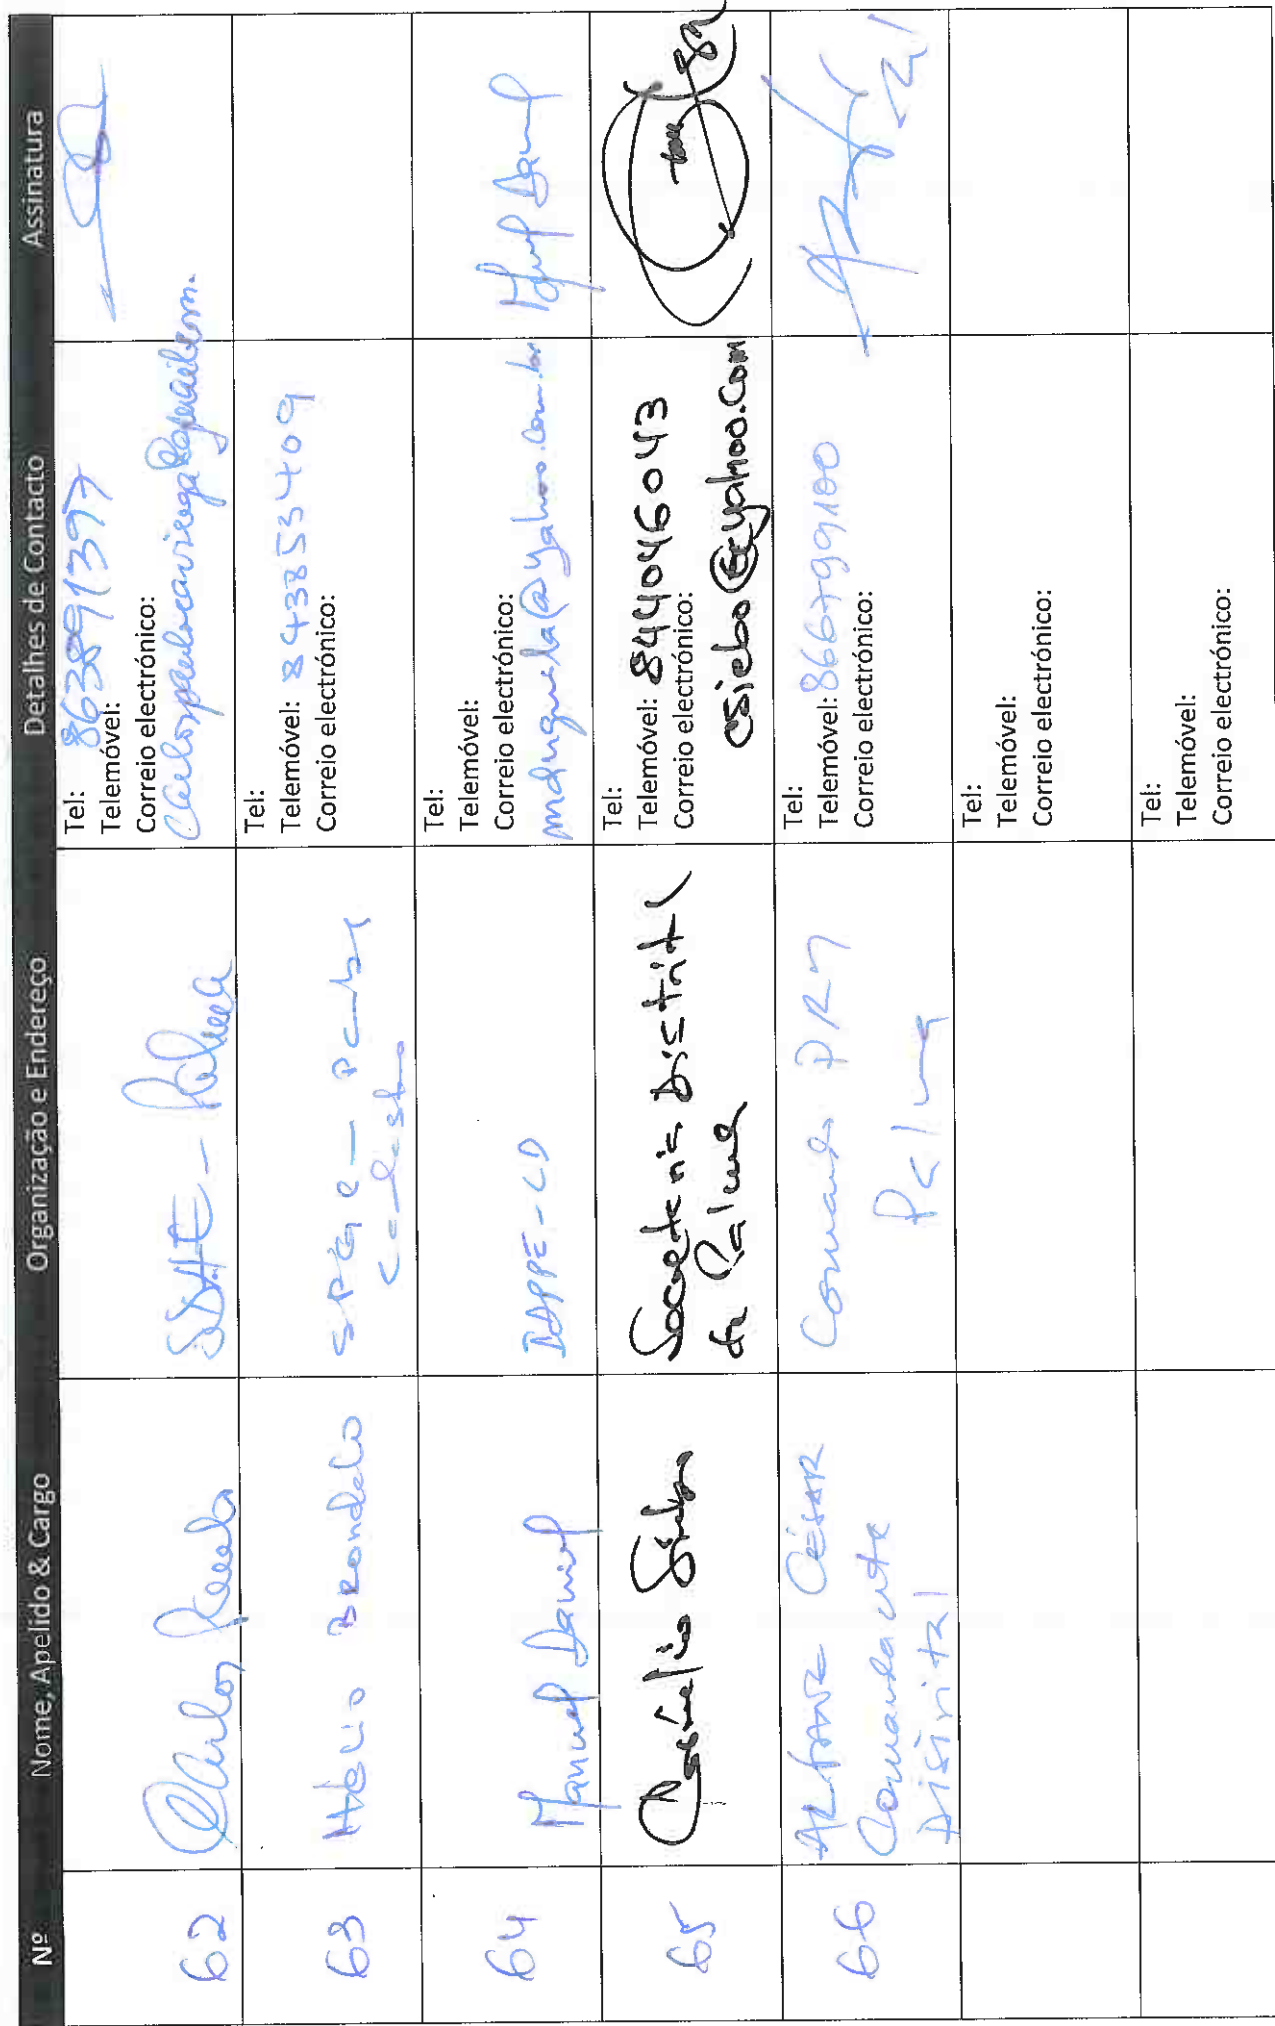 Nº Nome, Apelido & Cargo Organização e Endereço Detalhes de Contacto Assinatura
62 Carlos Paulo SDAE - Palma
Tel: 863891397
Telemóvel:
Correio electrónico:
63 Hélio Brandão
Tel:
Telemóvel: 843853409
Correio electrónico:
64 Manuel Daniel
Tel:
Telemóvel:
Correio electrónico:
@yahoo.com.br
Manuel Daniel
65
Secretaria Distrital
de Palma
Tel:
Telemóvel: 844046043
Correio electrónico:
66 César
Comandante
Distrital
Comando PRM
Palma
Tel:
Telemóvel: 866799100
Correio electrónico:
Tel:
Telemóvel:
Correio electrónico:
Tel:
Telemóvel:
Correio electrónico: